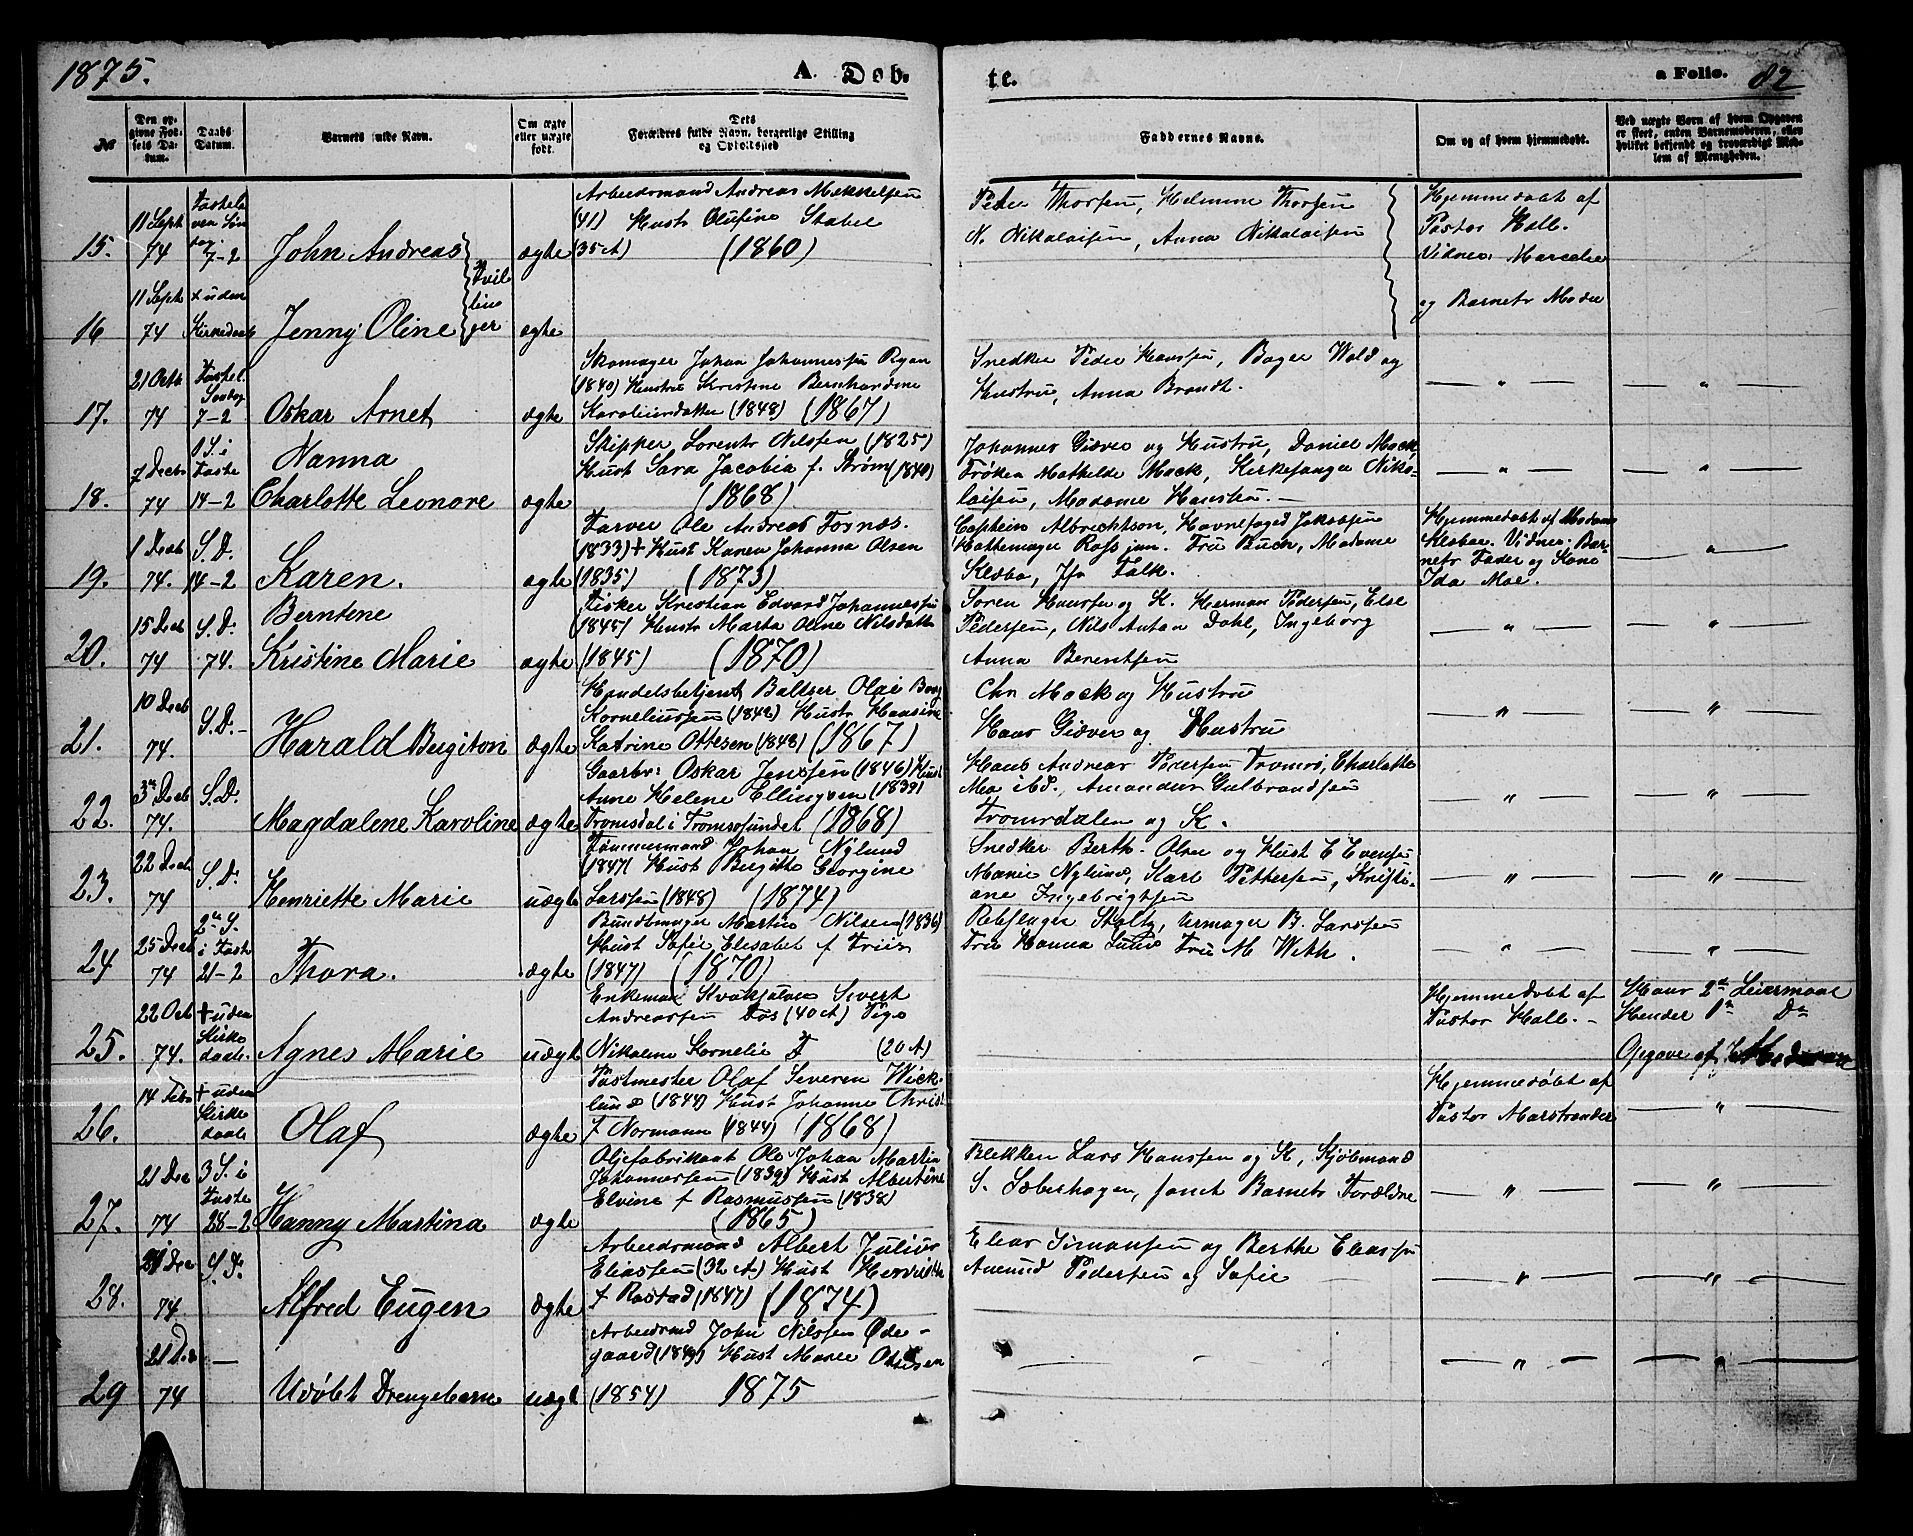 1875.
A. Døb-
te.
a Folio. 82
№
Den op-
givne Fød-
sels Da-
tum.
Daabs
Datum.
Barnets fulde Navn.
Om ægte
eller uægte
født.
Dets
Forældres fulde Navn, borgerlige Stilling
og Opholdssted
Faddernes Navne.
Om og af hvem hjemmedøbt.
Ved uægte Børn af hvem Opgaven
er skeet, enten Barnemoderen, eller
hvilket bekjendt og troværdigt Med-
lem af Menigheden.
15.
11 Sept
74
Fastela
vens Søn
dag.
7-2
John Andreas
Tvil
lin
ger
ægte
Arbeidsmand Andreas Mekkelsen
(41) Hustr Olufine Stabel
35 A) (1860)
Peder Thorsen, Helmine Thorsen
N. Nikolaisen, Anna Nikolaisen
Hjemmedøbt af
Pastor Hall.
Vidner: Marcelie
og Barnets Moder
16
11 Sept
74
+ uden
Kirkedaab
Jenny Oline
ægte
17.
21 Octb
74
Fastel.
Sondag
7-2
Oskar Arnet
ægte
Skomager Johan Johannessen Ryan
(1840) Hustru Kristine Bernhardine
Karoliusdatter (1848) (1867)
Snedker Peder Hanssen, Bager Wold og
Hustru, Anna Brandt.
18.
7 Decbr
74
1 S. i
Faste
14-2
Nanna
Charlotte Leonore
ægte
Skipper Lorents Nilssen (1825)
Hust Sara Jacobia f. Strøm (1840)
(1868)
Johannes Giæver og Hustru, Daniel Mack,
Frøken Mathilde Mack, Kirkesanger Niko-
laisen, Madame Hansten.
19.
1 Decb
74.
S. D.
14-2
Karen.
ægte
Farver Ole Andreas Fornæs.
(1833) + Hust Karen Johanna Olsen
(1835) (1873)
Captein Albrechtson, Havnefoged Jakobsen
Hattemager Ross jun. Fru Buch, Madame
Klæbo, Jfr Falk.
Hjemmedøbt af Madame
Klæboe. Vidner: Bar-
nets Fader og Kone
Ida Moe.
20.
15 Decb
74
S. D.
74.
Berntine
Kristine Marie
ægte
Fisker Kristian Edvard Johannessen
(1845) Hustr Marta Oline Nilsdatter
(1845) (1870)
Søren Hanssen og K. Herman Pedersen, Else
Pedersen, Nils Anton Dahl, Ingeborg
Anna Berentsen
21.
10 Decb
74.
S. D.
Harald Bugiton
ægte
Handelsbetjent Baltser Olai Borg
Korneliussen (1842) Hustr Hansine
Katrine Ottesen (1848) (1867)
Chr Mack og Hustru
Hans Giæver og Hustru
22.
3 Decb
74.
S. D.
Magdalene Karoline
ægte
Gaarbr: Oskar Jenssen (1846) Hust
Anne Helene Ellingsen (1839)
Tromsdal i Tromsøsundet (1868)
Hans Andreas Pedersen Tromsø, Charlotte
Moe ibd., Amandus Gulbrandsen
Tromsdalen og K.
23.
22 Decb
74
S. D.
Henriette Marie
uægte
Tømmermand Johan Nylund
(1847) Hust Birgitte Georgine
Larssen (1848) (1874)
Snedker Berth. Olsen og Hust E Evensen
Marie Nylund, Karl Pettersen, Kristi-
ane Ingebrigtsen
24
25 Decb
74
2 S.
i Faste
21-2
Thora.
ægte
Bundtmager Martin Nilsen (1836)
Hust Sofie Elisabet f Friis
(1847) (1870)
Rebslager Stoltz, Urmager B. Larssen
Fru Hanna Lund Fru M With.
25.
22 Oct
74.
+ uden
Kirke
daab.
Agnes Marie
uægte
Enkeman Kvaksalver Sivert
Andreassen Fos (40 A) Pige
Nikoline Kornelie F (20 A)
Hjemmedøbt af
Pastor Hall.
Hans 2 Leiermaal
Hendes 1 Do
Opgave af Moderen
26.
14 Febr
+ uden
Kirke
daab
Olaf
ægte
Postmester Olaf Severin Wick-
lund (1844) Hust Johanne Christ.
f Normann (1844) (1868)
Hjemmedøbt af
Pastor Marstrander
27.
21 Dec
74
3 S. i
Faste
28-2
Hanny Martina
ægte
Oljefabrikant Ole Johan Martin
Johannessen (1839) Hust Albertine
Elvine f Rasmussen (1838)
(1865)
Blekken Lars Hanssen og K, Kjøbmand
S. Søberhagen, samt Barnets Forældre
28.
21 Dec
74
S. D.
Alfred Eugen
ægte
Arbeidsmand Albert Julius
Eliassen (32 A) Hust Hervidtte
f Rostad (1847) (1874)
Elias Simonsen og Berthe Eliassen
Amund Pedersen og Sofie
29
21 Dec
74
Udøbt Drengebarn
uægte
Arbeidsmd John Nilssen Øde-
gaard (1849) Hust Maree Ottesen
(1854) 1875